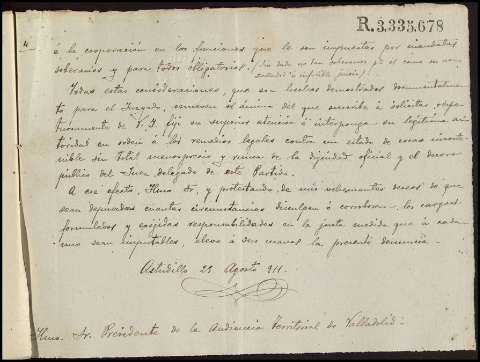 R.3.335.678
4
á la cooperación en las funciones que le son impuestas por mandatos
soberanos y para todos obligatorios.
Todas estas consideraciones, que son hechos demostrados documentalmen-
te para el Juzgado, mueven el ánimo del que suscribe á solicitar, respe-
tuosamente de V.I. fije su superior atención é interponga su legítima au-
toridad en orden á los remedios legales contra un estado de cosas insoste-
nible sin total menosprecio y ruina de la dignidad oficial y el decoro
público del Juez delegado de este Partido.
A ese efecto, Ilmo Sr, y protestando de mis vehementes deseos de que
sean depuradas cuantas circunstancias disculpen ó corroboren los cargos
formulados y exigidas responsabilidades en la justa medida que á cada
uno sean imputables, elevo á sus manos la presente denuncia.
Astudillo 25 Agosto 911.
Ilmo. Sr. Presidente de la Audiencia Territorial de Valladolid.